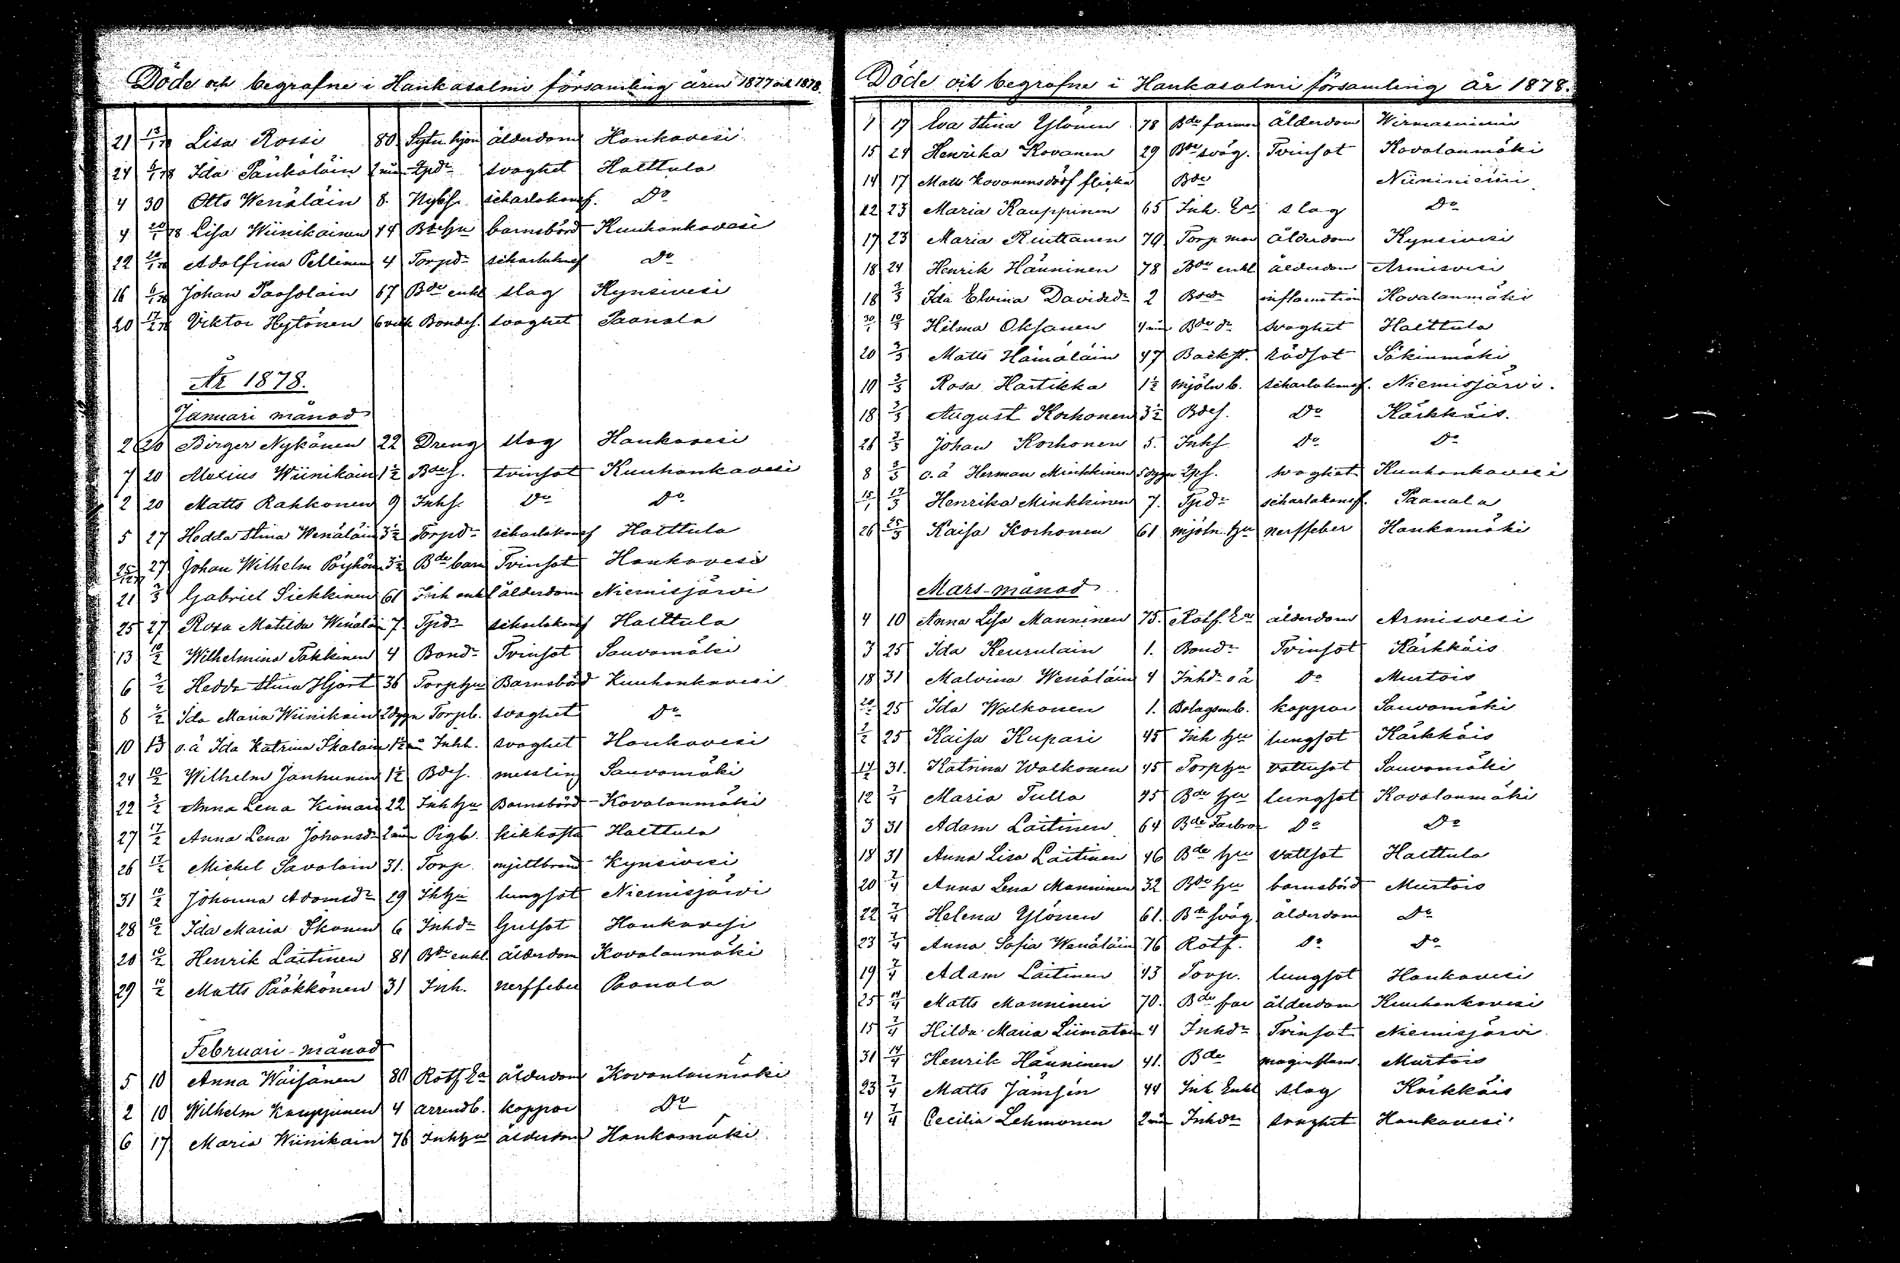 Döde och begrafne i Hankasalmi församling åren 1877 och 1878.
21 13/1 78 Lisa Rossi 80 Sytn. hjon ålderdom Hankavesi
24 6/1 78 Ida Pänkäläin 2 mån Tpdr svaghet Halttula
4 30 Otto Wenäläin 8. Nybs. scharlakansf. Do
4 20/1 78 Lisa Wiinikainen 44 Bdehu barnsbörd Kuuhankavesi
22 20/1 78 Adolfina Pellinen 4 Torpdr scharlaknsf Do
16 6/1 78 Johan Paasolain 67 Bde enkl slag Kynsivesi
20 17/2 78 Viktor Hytönen 6 veck Bondes. svaghet Paanala
År 1878.
Januari månad
2 20 Birger Nykänen 22 Dreng slag Hankavesi
7 20 Alexius Wiinikain 1½ Bdes. tvinsot Kuuhankavesi
2 20 Matts Rahkonen 9 Inhs. Do Do
5 27 Hedda Stina Wenäläin 3½ Torpdr scharlakansf Halttula
25/12 77 27 Johan Wilhelm Pöyhön 3½ Bde barn Tvinsot Hankavesi
21 3/3 Gabriel Siekkinen 61 Inh enkl ålderdom Niemisjärvi
25 27 Rosa Matilda Wenäläi 7. Tpdr scharlakansf Halttula
13 10/2 Wilhelmina Takkinen 4 Bondr Tvinsot Sauvomäki
6 3/2 Hedda Stina Hjort 36 Torphu Barnsbörd Kuuhankavesi
8 3/2 Ida Maria Wiinikain 2 dygn Torpb. svaghet Do
10 13 o.ä Ida Katrina Ikalain 1½ m Inhb. svaghet Hankavesi
24 10/2 Wilhelm Janhunen 1½ Bdes. messling Sauvomäki
22 3/2 Anna Lena Kimari 22 Inhhu Barnsbörd Kovalanmäki
27 17/2 Anna Lena Johansdr 2 mån Pigb. kikhosta Halttula
26 17/2 Michel Savolain 31. Torp. mjeltbrand Kynsivesi
31 10/2 Johanna Adamsdr 29 Ihhu lungsot Niemisjärvi
28 10/2 Ida Maria Ikonen 6 Inhdr Gulsot Hankavesi
20 10/2 Henrik Laitinen 81 Bde enkl ålderdom Kovalanmäki
29 10/2 Matts Pääkkönen 31 Inh. nerffeber Paanala
Februari-månad
5 10 Anna Wäisänen 80 Rotf Ea ålderdom Kovanlanmäki
2 10 Wilhelm Kauppinen 4 arrendb. koppor Do
6 17 Maria Wiinikain 76 Inhhu ålderdom Hankamäki
Döde och begrafne i Hankasalmi församling år 1878.
1 17 Eva Stina Ylönen 78 Bde farmor ålderdom
15 24 Henrika Kovanen 29 Bdesvåg. Tvinsot Kovalanmäki
14 17 Matts Kovanens dödf flicka Bde Niininiemi
22 23 Maria Kauppinen 65 Inh. Ea slag Do
17 23 Maria Ruittanen 79 Torp mor ålderdom Kynsivesi
18 24 Henrik Hänninen 78 Bde enkl ålderdom Armisvesi
18 3/3 Ida Elvina Davidsdr 2 Bdedr inflamation Kovalanmäki
30/1 10/3 Hilma Oksanen 4 mån Bdedr svaghet Halttula
20 3/3 Matts Hämäläin 47 Backst. rödsot Säkinmäki
19 3/3 Rosa Hartikka 1½ mjöln b. scharlakansf. Niemisjärvi.
18 3/3 August Korhonen 3½ Bdes. Do Kärkkäis.
26 3/3 Johan Korhonen 5. Inhs Do Do
8 3/3 o.ä Herman Minkkinen 5 dygn Tps. svaghet Kuuhankavesi
15/1 17/3 Henrika Minkkinen 7. Tpdr scharlakansf. Paanala
26 25/3 Kaisa Korhonen 61 mjöln. hu nerffeber Hankamäki
Mars-månad
4 10 Anna Lisa Manninen 75. Rotf. Ea ålderdom Armisvesi
3 25 Ida Keurulain 1. Bondr Tvinsot Kärkkäis
18 31 Malvina Wenäläin 4 Inhdr o ä Do Murtois
25 Ida Walkonen 1. Bolagsmb. koppor Sauvomäki
2/2 25 Kaisa Kupari 45 Inh hu lungsot Kärkkäis
14/2 31. Katrina Walkonen 45 Torphu vattusot Sauvomäki
12 7/4 Maria Tulla 45 Bde hu lungsot Kovalanmäki
3 31 Adam Laitinen 64 Bde Farbror Do Do
18 31 Anna Lisa Laitinen 46 Bde hu vattsot Halttula
20 7/4 Anna Lena Manninen 32 Bde hu barnsbörd Murtois
22 7/4 Helena Ylönen 61. Bde svåg. ålderdom Do
23 7/4 Anna Sofia Wenäläin 76 Rotf. Do Do
19 7/4 Adam Laitinen 43 Torp. lungsot Hankavesi
25 14/4 Matts Manninen 70. Bde far ålderdom Kuuhankavesi
15 7/4 Hilda Maria Liimatain 4 Inhdr Tvinsot Niemisjärvi
31 14/4 Henrik Hänninen 41. Bde maginflam. Murtois
23 7/4 Matts Jämsén 44 Inh Enkl slag Kärkkäis
4 7/4 Cecilia Lehmonen 2 mån Inhdr svaghet Hankavesi